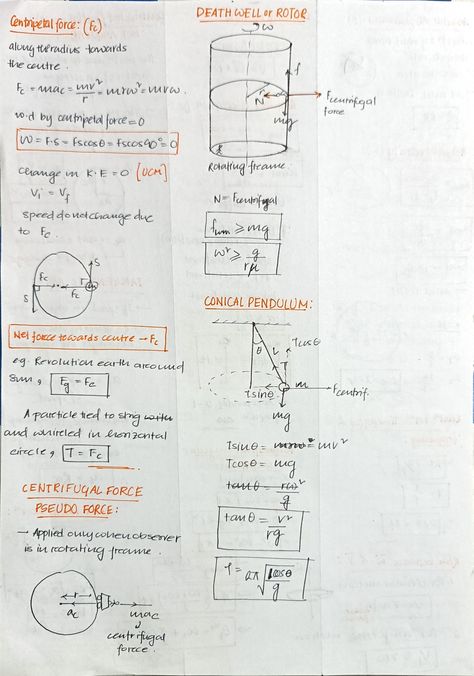 Centripetal force: (Fc)
along the radius towards
the centre.
Fc = mac = mv²/r = mrω² = mvω.
w.d by centripetal force = 0
W = F.S = Fscosθ = Fscos90° = 0
change in K.E = 0 [UCM]
Vi = Vf
speed do not change due
to Fc.
S
Fc
r
Fc
S
Net force towards centre → Fc
eg. Revolution earth around
sun, Fg = Fc
A particle tied to sting with
and whirled in horizontal
circle, T = Fc
CENTRIFUGAL FORCE
PSEUDO FORCE:
→ Applied only when observer
is in rotating frame.
r
ac
mac
centrifugal
force.
DEATH WELL or ROTOR
ω
f
r
N
Fcentrifugal
force
mg
Rotating frame.
N = Fcentrifugal
flim ≥ mg
ω² ≥ g/rμ
CONICAL PENDULUM:
θ
L
Tcosθ
T
m
Tsinθ
Fcentrif.
mg
Tsinθ = = mv²
Tcosθ = mg
tanθ =
tanθ = v²/rg
2π√lcosθ/g